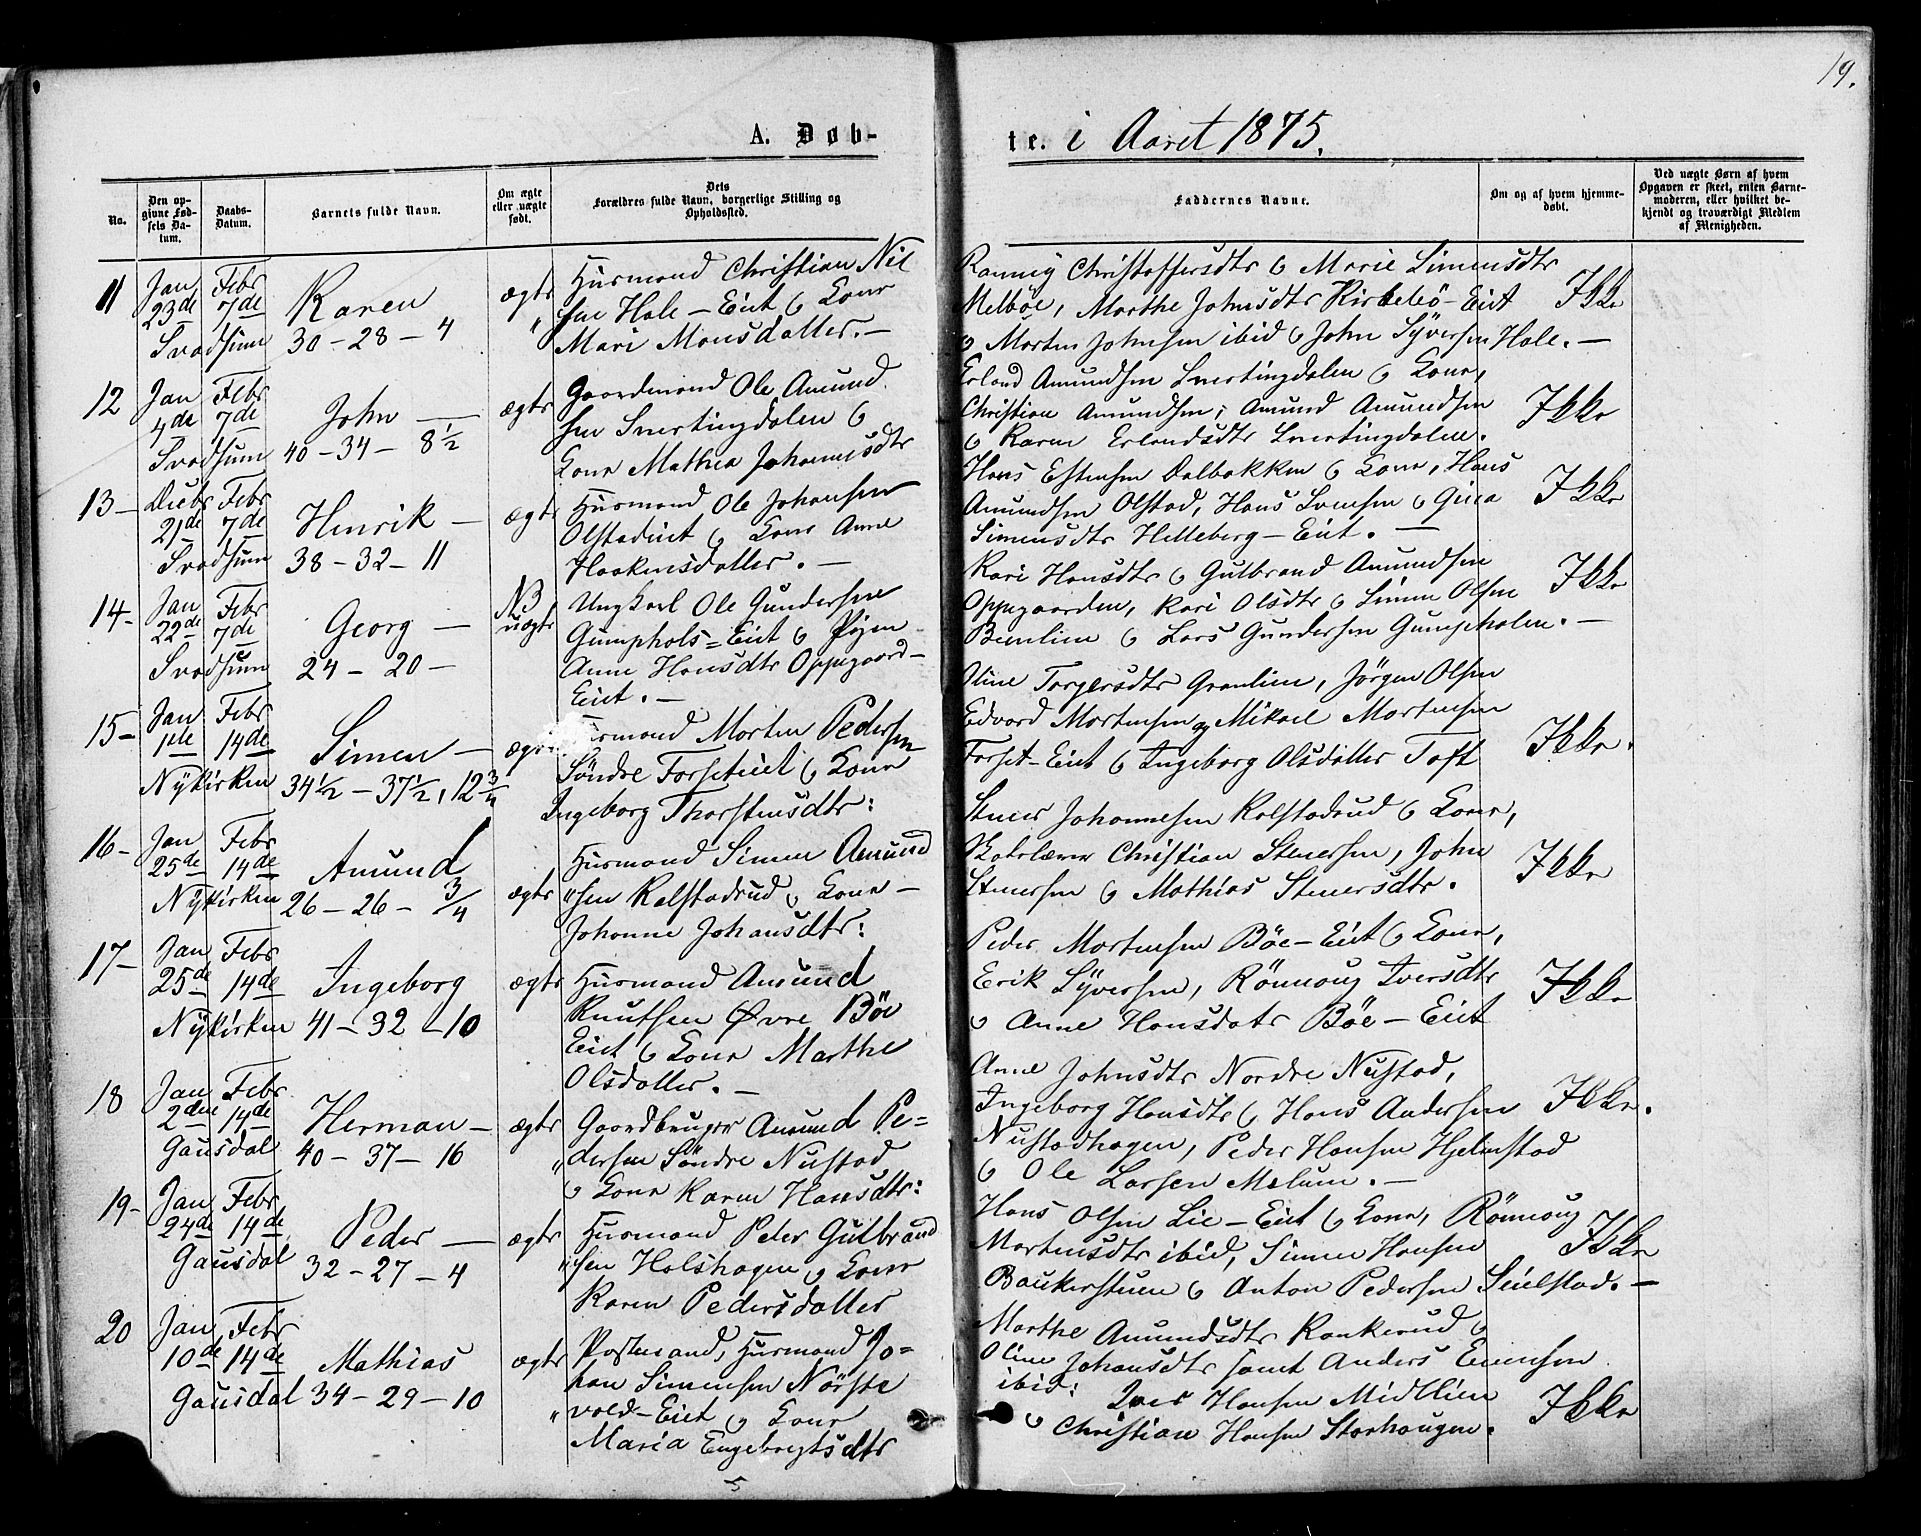 19.
A. Døb-
te. i Aaret 1875.
No.
Den op-
givne Fød-
sels Da-
tum.
Daabs-
Datum.
Barnets fulde Navn.
Om ægte
eller uægte
født.
Dets
Forældres fulde Navn, borgerlige Stilling og
Opholdssted.
Faddernes Navne.
Om og af hvem hjemme-
døbt.
Ved uægte Børn af hvem
Opgaven er skeet, enten Barne-
moderen, eller hvilket be-
kjendt og troværdigt Medlem
af Menigheden.
11 Jan 23de Febr 7de
Svadsum
Karen
30 - 28 - 4
ægte
Husmand Christian Nil
sen Hole - Eiet & Kone
Mari Monsdatter. -
Christoffersdtr & Marie Simensdtr
Melböe, Marthe Johnsdtr Kirkebö - Eiet
& Morten Johnsen ibid & John Syversen Hole. -
Ikke
12 Jan 4de Febr 7de
Svadsum
John -
40 - 34 - 8 1/2
ægte
Gaardmand Ole Amund
sen Svertingdalen &
Kone Mathea Johannesdtr
Erland Amundsen Svertingdalen & Kone,
Christian Amundsen, Amund Amundsen
& Karen Erlandsdtr Svertingdalen.
Ikke
13 - Decbr 21de Febr 7de
Svadsum
Henrik -
38 - 32 - 11
ægte
Husmand Ole Johansen
Olstadeiet & Kone Anne
Haakensdatter. -
Hans Estensen Dalbakken & Kone, Hans
Amundsen Olstad, Hans Svensen & Gina
Simensdtr Helleberg - Eiet. -
Ikke
14 - Jan 22de Febr 7de
Svadsum
Georg -
24 - 20 -
N3
uægte
Ungkarl Ole Gundersen
Gumphols = Eiet & Pigen
Anne Hansdtr Oppegaard -
Eiet. -
Kari Hansdtr & Gulbrand Amundsen
Oppegaarden, Kari Olsdtr & Simen Olsen
& Lars Gundersen Gumpholen. -
Ikke
15 - Jan 1ste Febr 14de
Nykirken
Simen -
34 1/2 - 37 1/2, 12 3/4
ægte
Husmand Morten Pedersen
Söndre Forseteiet & Kone
Ingeborg Thorstensdtr:
Oline Torgersdtr Granlien, Jörgen Olsen
Edvard Mortensen og Mikael Mortensen
Forset - Eiet & Ingeborg Olsdatter Toft
Ikke.
16 - Jan 25de Febr 14de
Nykirken
Amund
26 - 26 - 3/4
ægte
Husmand Simen Amund
sen Kalstadrud & Kone -
Johanne Johansdtr:
Stener Johannesen Kalstadrud & Kone,
Skolelærer Christian Stenersen, John
Stenersen & Mathias Stenersdtr.
Ikke
17 - Jan 25de Febr 14de
Nykirken
Ingeborg
41 - 32 - 10
ægte
Husmand Amund
Knutsen Øvre Böe
Eiet & Kone Marthe
Olsdatter. -
Peder Mortensen Böe - Eiet & Kone,
Erik Syversen, Rönnoug Iversdtr
& Anne Hansdatr Böe - Eiet
Ikke
18 Jan 2den Febr 14de
Gausdal
Herman -
40 - 37 - 16
ægte
Gaardbruger Amund Pe=
dersen Söndre Nustad
& Kone Karen Hansdtr:
Anne Johnsdtr Nordre Nustad,
Ingeborg Hansdtr & Hans Andersen
Nustadhagen, Peder Hansen Hjelmstad
& Ole Larsen Melum. -
Ikke.
19 - Jan 24de Febr 14de
Gausdal
Peder -
32 - 27 - 4
ægte
Husmand Peter Gulbrand
sen Holshagen & Kone
Karen Pedersdatter
Hans Olsen Lie - Eiet & Kone, Rönnoug
Mortensdtr ibid, Simen Hansen
Baukerstuen & Anton Pedersen Seielstad. -
Ikke
20 Jan 10de Febr 14de
Gausdal
Mathias
34 - 29 - 10
ægte
Postmand, Husmand Jo=
han Simensen Nörste
vold - Eiet & Kone
Maria Engebregtsdtr
Marthe Amundsdtr Kankerud &
Oline Johansdtr samt Anders Evensen
ibid: Iver Hansen Midtlien
& Christian Hansen Storhaugen.
Ikke
5